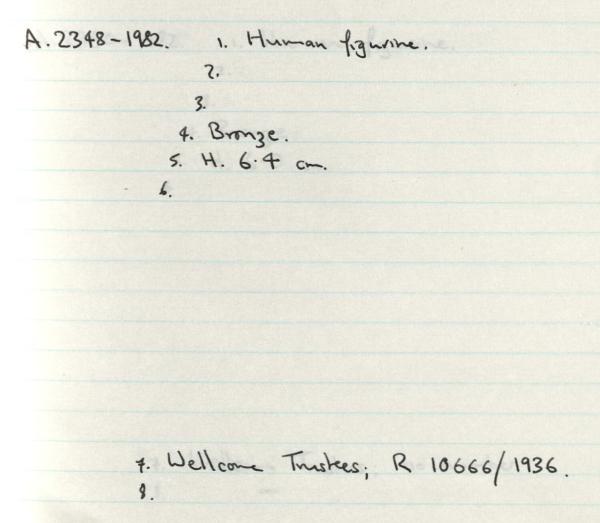 A.2348-1982. 1. Human figurine.
2.
3.
4. Bronze.
5. H. 6.4 cm.
6.
7. Wellcome Trustees; R 10666/1936.
8.